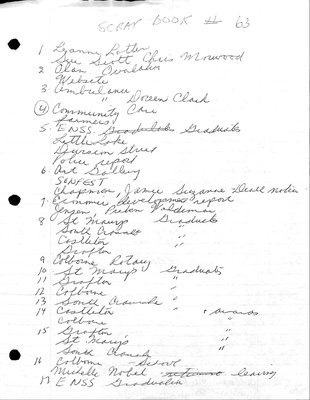 SCRAP BOOK # 63
1 Lyanne Lotter
Sue Scott Chris Morwood
2 Alan
Website
3 Ambulance
" Doreen Clark
4 Community Care
Farmers
5. ENSS Graduates Graduates
Little Lake
Division Street
Police report
6. Art Gallery
SONFEST
Chapman, Jamie Suzanne Death notice
7. Economic development report
Jensen, Preben Valdemar
8 St Mary's Graduates
South Cramahe "
Castleton "
Grafton
9 Colborne Rotary
10 St Mary's Graduates
11 Grafton "
12 Colborne "
13 South Cramahe "
14 Castleton " + awards
Colborne "
15 Grafton "
St Mary's "
South Cramahe "
16 Colborne - School
Michelle Nobal retirement leaving
17 ENSS Graduation